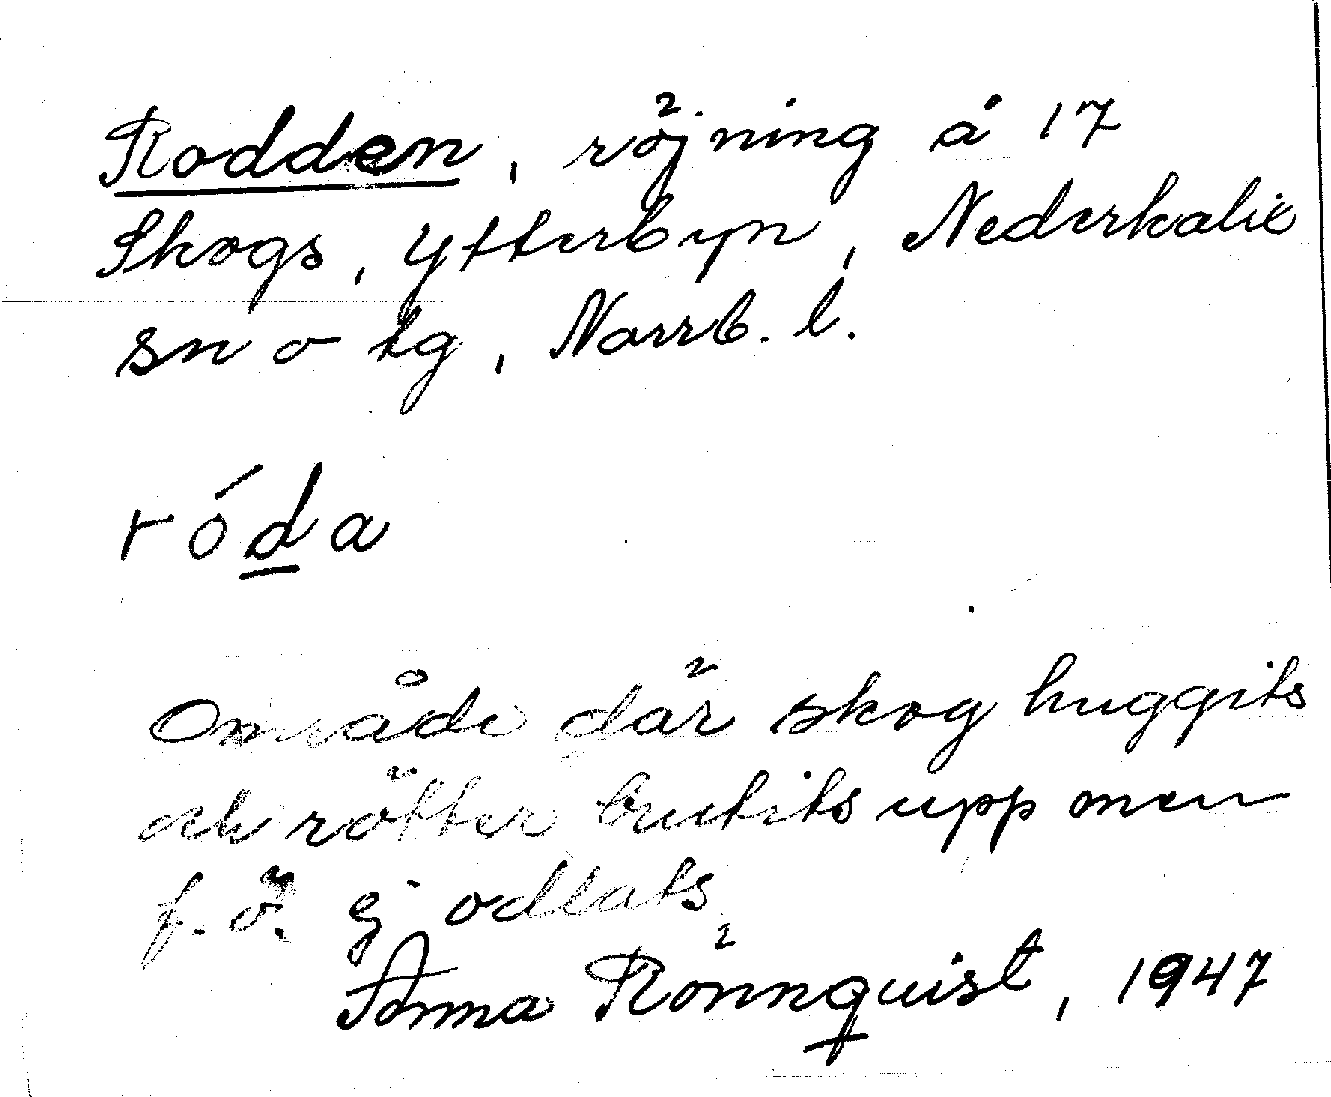 Rodden, röjning å 17
Skogs, Ytterbyn, Nederkalix
sn o tg, Norrb. l.
róda
Område där skog huggits
och rötter brutits upp men
f. ö. ej odlats
Anna Rönnquist, 1947